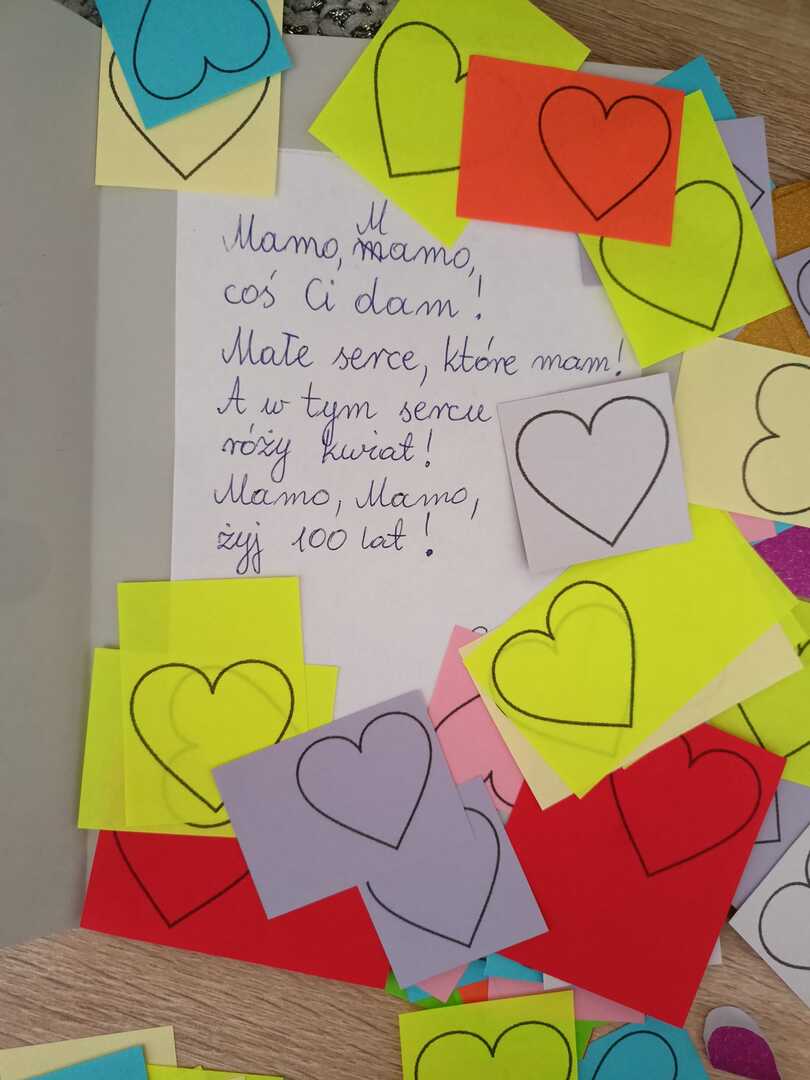 Mamo, Mamo,
coś Ci dam!
Małe serce, które mam!
A w tym sercu
róży kwiat!
Mamo, Mamo,
żyj 100 lat!